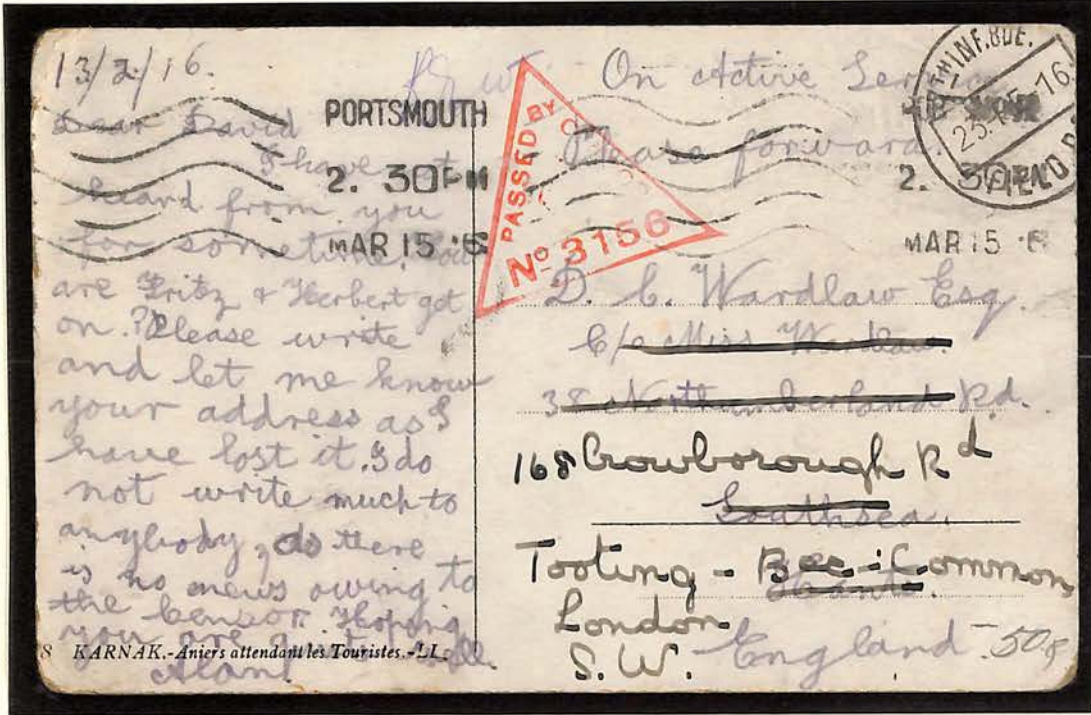 13/2/16.
Dear David
I have not
heard from you
for sometime. How
are Fritz & Herbert get
on? Please write
and let me know
your address as I
have lost it. I do
not write much to
anybody, as there
is no news owing to
the Censor. Hoping
you are
Alan.
8 KARNAK.-Aniers attendant les Touristes.-LL.
PORTSMOUTH
2. 30PM
MAR 15 6
PASSED BY
No 3156
On Active Service
Please forward.
TH INF. BDE.
FIELD P.
2. 30PM
MAR 15 6
D. C. Wardlaw Esq.
C/o Miss Wardlaw.
38 Northumberland Rd.
168 Crowborough Rd
Southsea.
Tooting - Bec - Common
Hants.
London
S.W. England.
50p